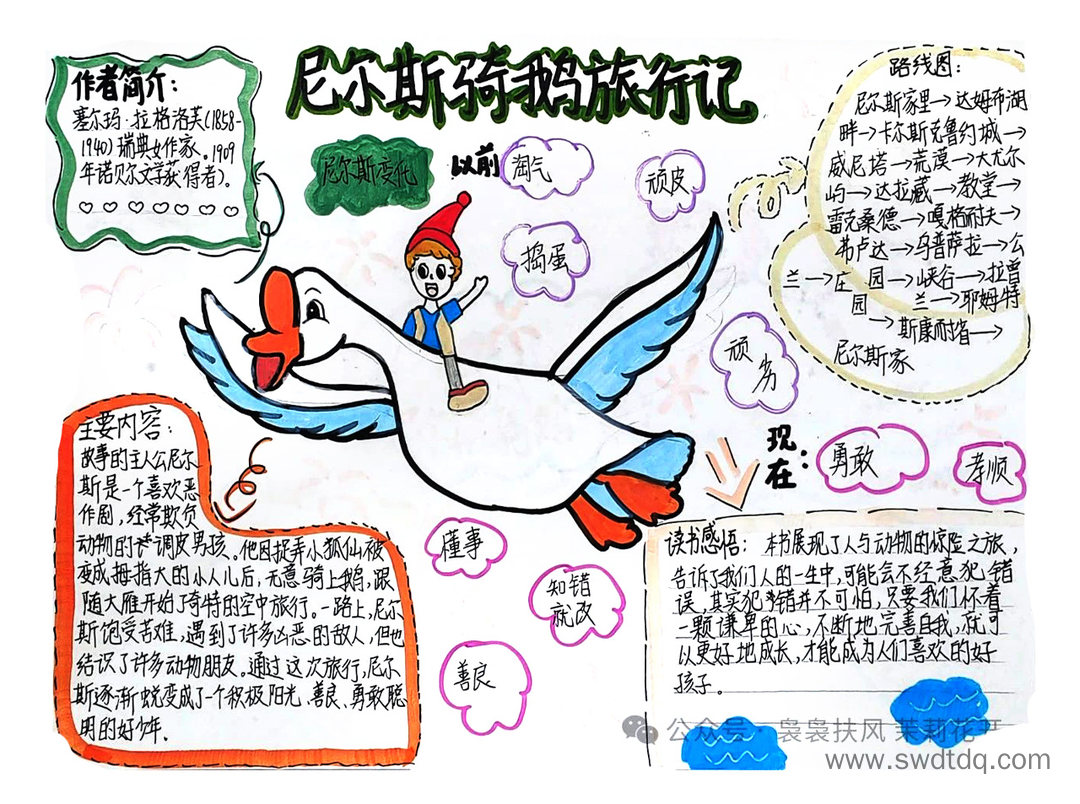 尼尔斯骑鹅旅行记
作者简介：
塞尔玛·拉格洛芙(1858-
1940)瑞典女作家。1909
年诺贝尔文学获得者)。
尼尔斯变化
以前
淘气
顽皮
捣蛋
顽劣
路线图：
尼尔斯家里→达姆布湖
畔→卡尔斯克鲁约城→
威尼塔→荒漠→大尤尔
屿→达拉崴→教堂→
雷克桑德→嘎格耐夫→
弗卢达→乌普萨拉→么
兰→庄园→峡谷→拉曾
园 兰→耶姆特
→斯康耐皆→
尼尔斯家
现在：
勇敢
孝顺
懂事
知错
就改
善良
主要内容：
故事的主人公尼尔
斯是一个喜欢恶
作剧，经常欺负
动物的调皮男孩。他因捉弄小狐仙被
变成拇指大的小人儿后，无意骑上鹅，跟
随大雁开始了奇特的空中旅行。一路上，尼尔
斯饱受苦难，遇到了许多凶恶的敌人，但也
结识了许多动物朋友。通过这次旅行，尼尔
斯逐渐蜕变成了一个积极阳光、善良、勇敢聪
明的好少年.
读书感悟：本书展现了人与动物的惊险之旅，
告诉了我们人的一生中，可能会不经意犯错
误，其实犯错并不可怕，只要我们怀着
一颗谦卑的心，不断地完善自我，就可
以更好地成长，才能成为人们喜欢的好
孩子。
公众号·袅袅扶风 茉莉花开
www.swdtdq.com